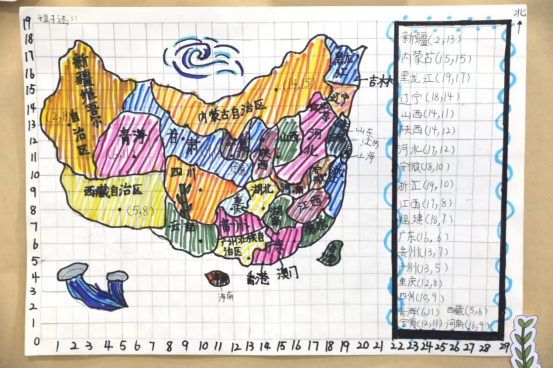 北
新疆(2,13)
内蒙古(15,15)
黑龙江(19,17)
辽宁(18,14)
山西(14,11)
陕西(14,12)
河北(17,12)
安徽(18,10)
浙江(19,10)
江西(17,8)
福建(18,7)
广东(16,6)
贵州(13,7)
广州(13,5)
重庆(12,8)
四川(10,9)
青海(6,11) 西藏(5,8)
宁夏(12,11) 河南(16,9)
新疆维吾尔自治区
黑龙江
吉林
(14,15)
内蒙古自治区
青海
甘肃
山西
河北
山东
上海
陕西
西藏自治区
(5,8)
四川
湖北
河南
江西
云南
贵州
广州壮族自治区
海南
香港 澳门
19
18
17
16
15
14
13
12
11
10
9
8
7
6
5
4
3
2
1
0
1 2 3 4 5 6 7 8 9 10 11 12 13 14 15 16 17 18 19 20 21 22 23 24 25 26 27 28 29